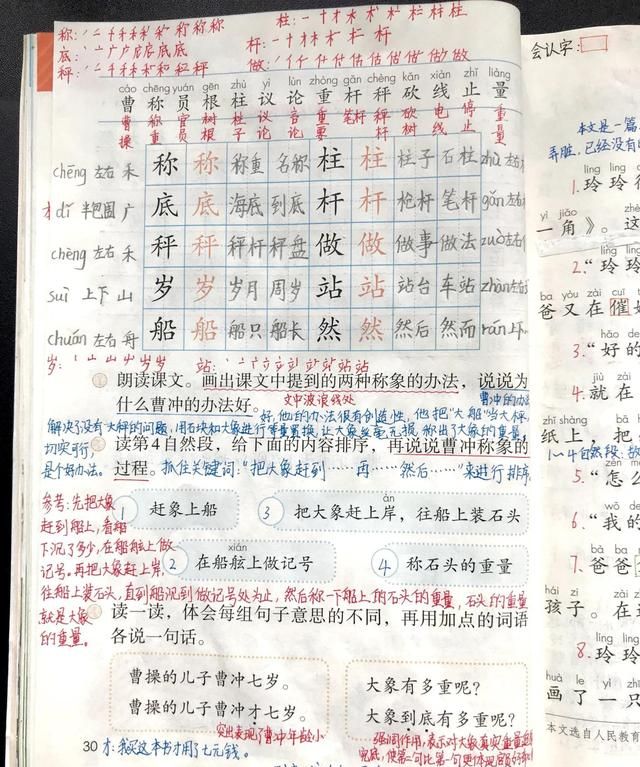 称:
柱:
底:
杆:
秤:
做:
cáo chēng yuán gēn zhù yì lùn zhòng gǎn chèng kǎn xiàn zhǐ liàng
曹 称 员 根 柱 议 论 重 杆 秤 砍 线 止 量
曹操 称重 官员 树根 柱子 议论 言论 重要 笔杆 秤杆 砍树 电线 停止 重量
chēng 左右 禾 称 称 称重 名称 柱 柱 柱子 石柱 zhù 左右
dǐ 半包围 广 底 底 海底 到底 杆 杆 枪杆 笔杆 gǎn 左右
chèng 左右 禾 秤 秤 秤杆 秤盘 做 做 做事 做法 zuò 左右
suì 上下 山 岁 岁 岁月 周岁 站 站 站台 车站 zhàn 左右
chuán 左右 舟 船 船 船只 船长 然 然 然后 然而 rán 上下
岁:
站:
朗读课文。画出课文中提到的两种称象的办法,说说为
文中波浪线处
曹冲的办法
什么曹冲的办法好。
好,他的办法很有创造性,他把"大船"当大秤,
解决了没有大秤的问题,用石块和大象进行等重置换,让大象丝毫无损,称出了大象的重量,
切实可行,
是个好办法。
读第4自然段,给下面的内容排序,再说说曹冲称象的
过程。
抓住关键词:"把大象赶到……再……然后……"来进行排序
参考:先把大象
赶到船上,看船
下沉了多少,在船舷上做
记号。再把大象赶上岸,
往船上装石头,直到船沉到做记号处为止,然后称一下船上的石头的重量,石头的重量
就是大象
的重量。
1 赶象上船
àn
3 把大象赶上岸,往船上装石头
xián
2 在船舷上做记号
4 称石头的重量
读一读,体会每组句子意思的不同,再用加点的词语
各说一句话。
曹操的儿子曹冲七岁。
曹操的儿子曹冲才七岁。
突出表现了曹冲年龄小
大象有多重呢?
大象到底有多重呢?
强调作用,表示对大象真实重量
30
才:我买这本书才用了七元钱。
会认字:
本文是一篇
弄脏,已经没有
1.玲玲
yì jiǎo
一角》。这
líng líng
2."玲玲
bà yòu zài cuī
爸又在催
3."好的
jiù zài
4.就在
zhǐ shàng
纸上,把
1~4自然段:
5."怎
6."我的
bà ba
7.爸爸
hái zi
孩子。在
líng líng
8.玲玲
huà le yì zhī
画了一只
本文选自人民教育